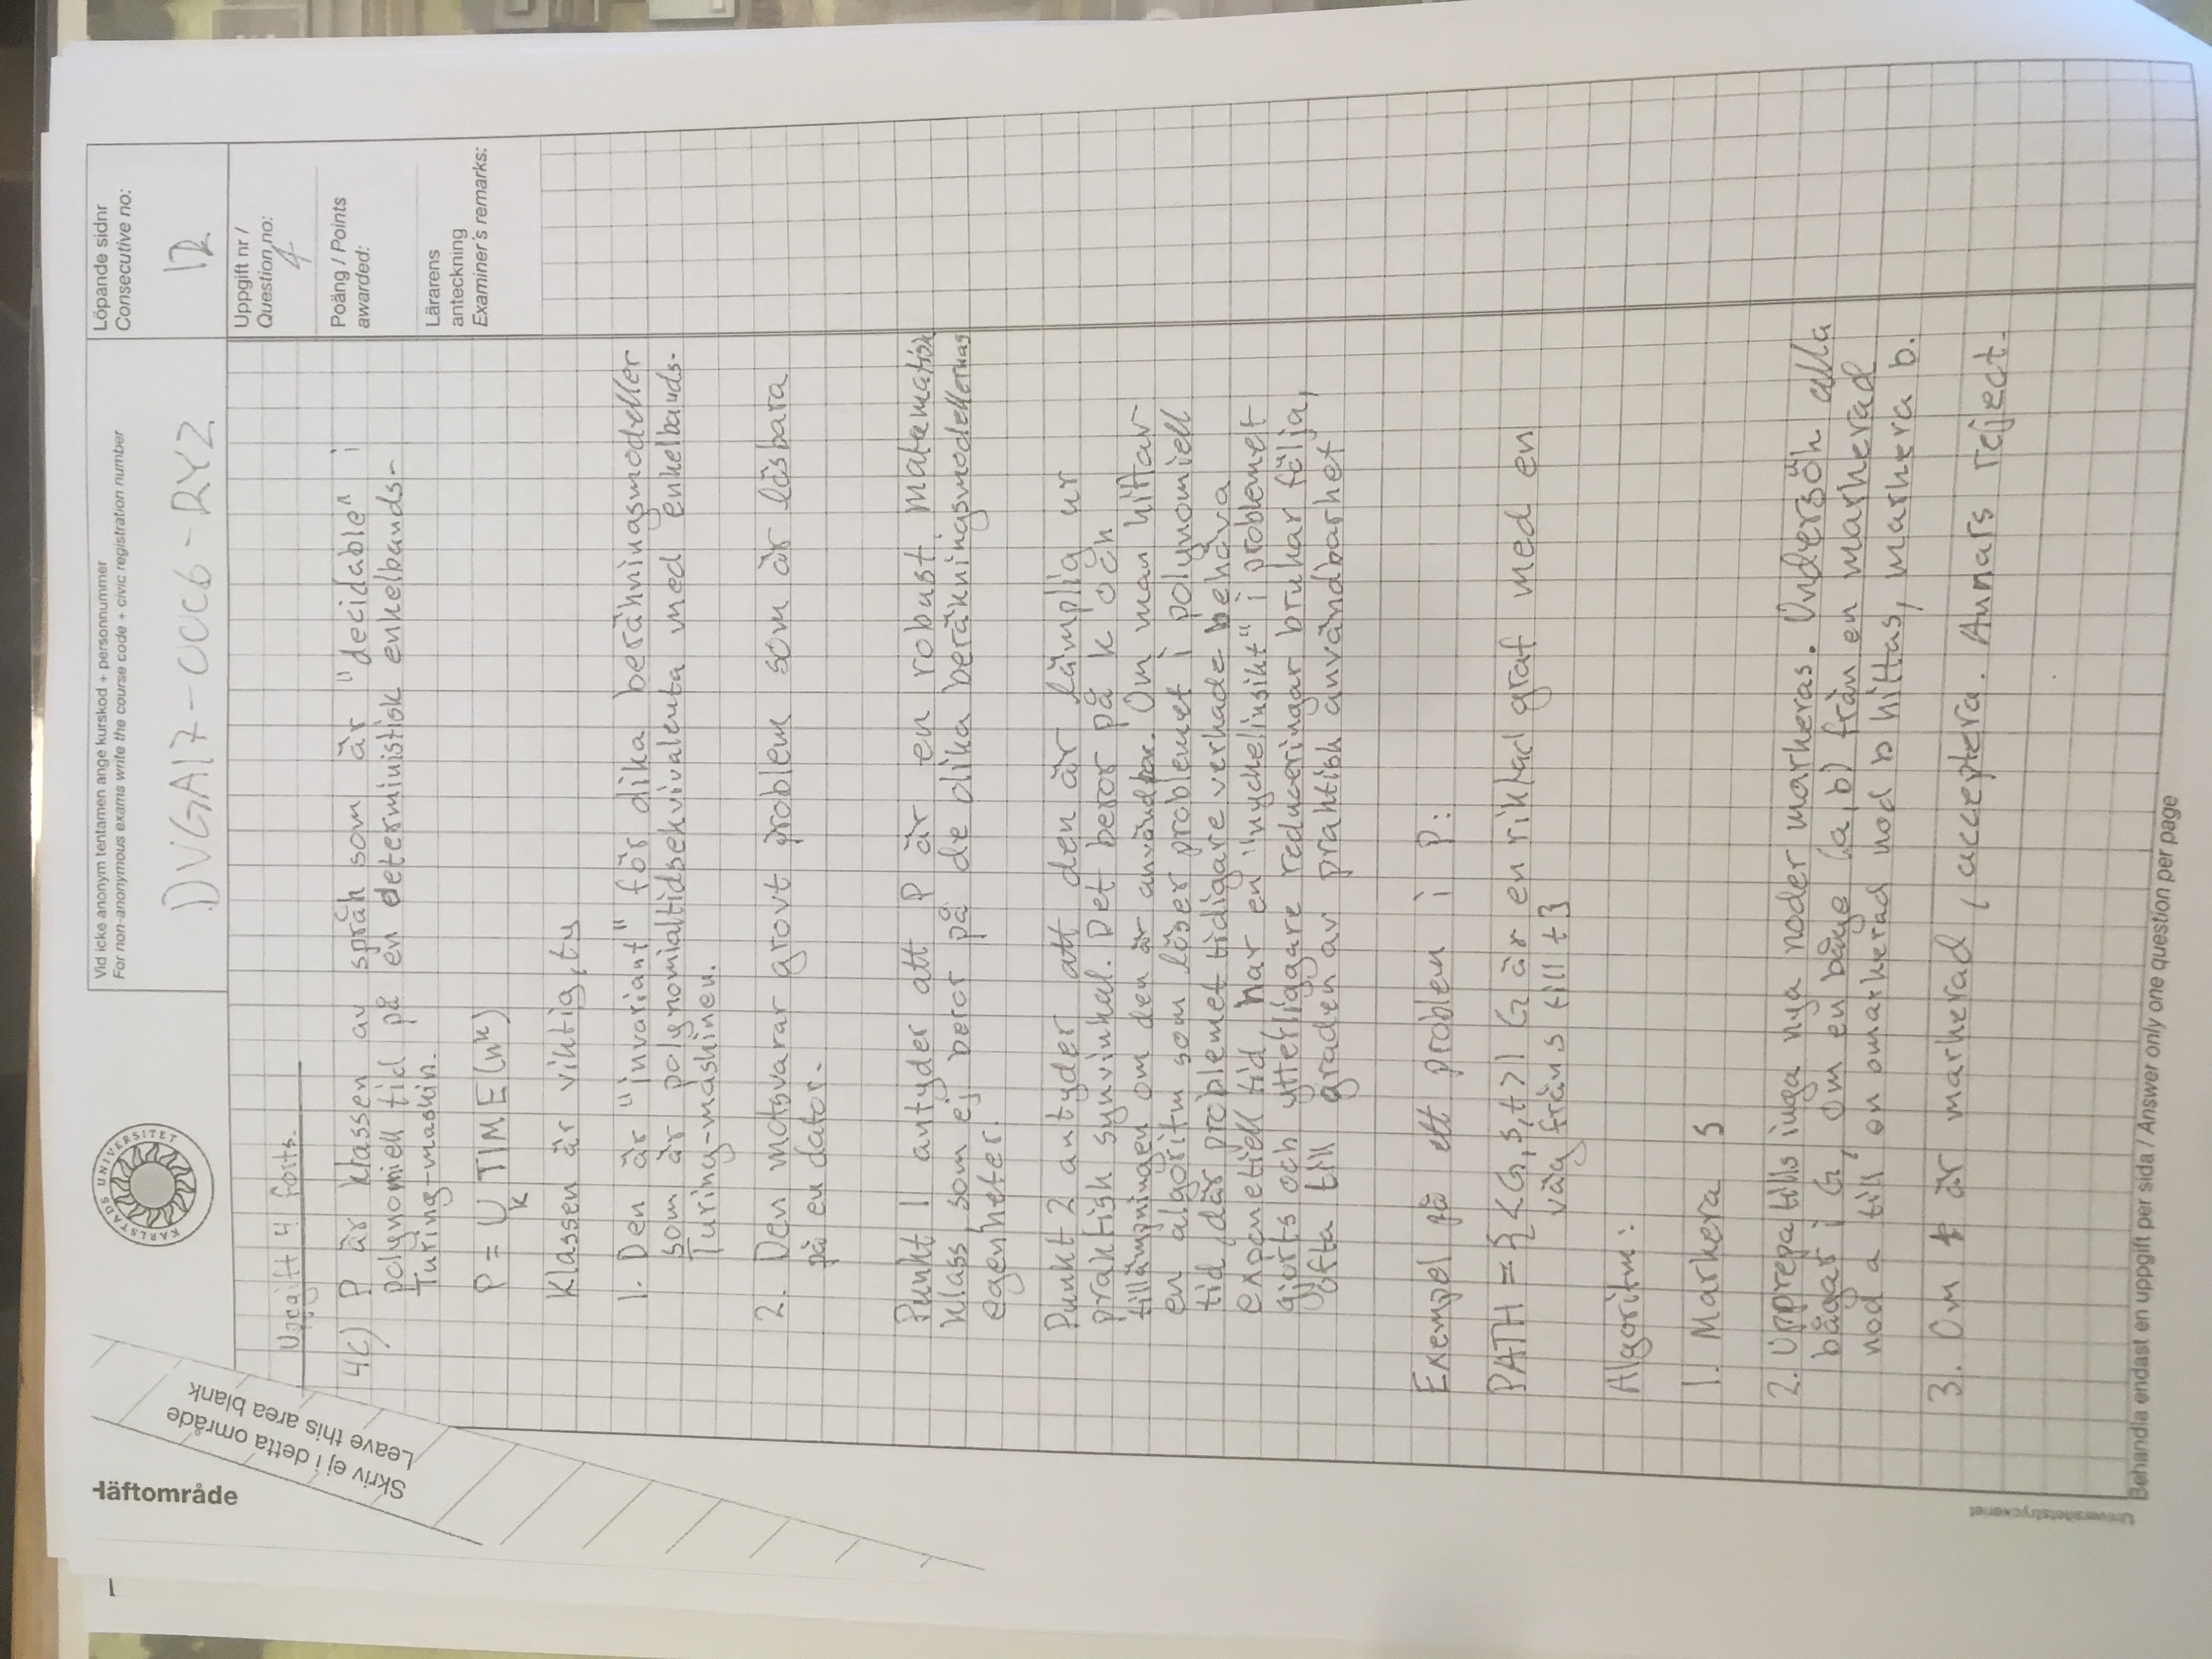 Häftområde
Skriv ej i detta område
Leave this area blank
KARLSTADS UNIVERSITET
Vid icke anonym tentamen ange kurskod + personnummer
For non-anonymous exams write the course code + civic registration number
DVGA17-0006-RYZ
Löpande sidnr
Consecutive no:
12
Uppgift nr /
Question no:
4
Poäng / Points
awarded:
Lärarens
anteckning
Examiner's remarks:
Uppgift 4 forts.
4c) P är klassen av språk som är "decidable" i
polynomiell tid på en deterministisk enkelbands-
Turing-maskin.
P = ∪ TIME(n^k)
k
Klassen är viktig, ty
1. Den är "invariant" för olika beräkningsmodeller
som är polynomialtidsekvivalenta med enkelbands-
Turing-maskinen.
2. Den motsvarar grovt problem som är lösbara
på en dator.
Punkt 1 antyder att P är en robust matematisk
klass, som ej beror på de olika beräkningsmodellernas
egenheter.
Punkt 2 antyder att den är lämplig ur
praktisk synvinkel. Det beror på k och
tillämpningen om den är användbar. Om man hittar
en algoritm som löser problemet i polynomiell
tid, där problemet tidigare verkade behöva
exponetiell tid, har en "nyckelinsikt" i problemet
gjorts och ytterliggare reduceringar brukar följa,
ofta till graden av praktisk användbarhet
Exempel på ett problem i P:
PATH = {<G,s,t>| G är en riktad graf med en
väg från s till t}
Algoritm:
1. Markera s
2. Upprepa tills inga nya noder markeras. Undersök alla
bågar i G, om en båge (a,b) från en markerad
nod a till en omarkerad nod b hittas, markera b.
3. Om t är markerad, acceptera. Annars reject.
Universitetstryckeriet
Behandla endast en uppgift per sida / Answer only one question per page